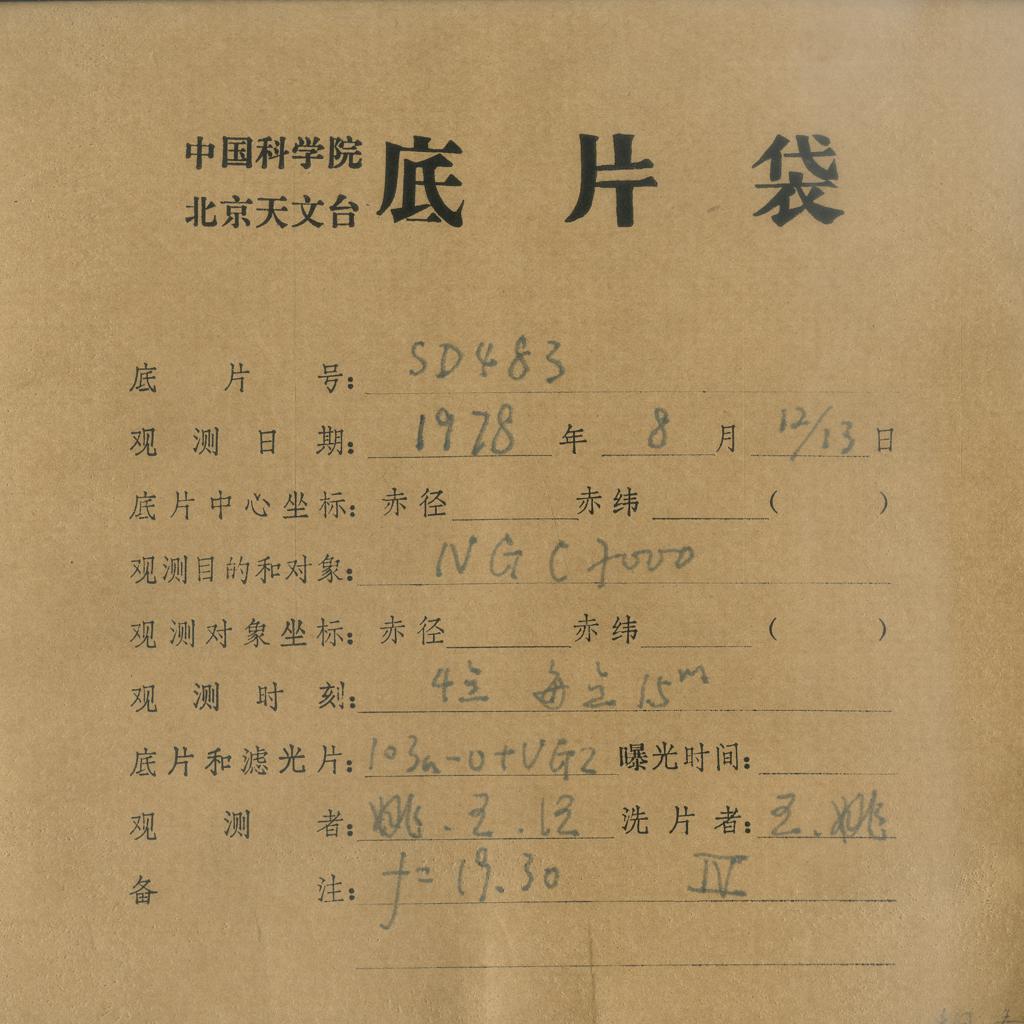 中国科学院
北京天文台
底片袋
底片号: SD483
观测日期: 1978年 8月 12/13日
底片中心坐标: 赤径 赤纬 ( )
观测目的和对象: NGC7000
观测对象坐标: 赤径 赤纬 ( )
观测时刻: 4 每 15m
底片和滤光片: 103a-O+UG2 曝光时间:
观测者: 姚.王. 洗片者: 王.姚
备注: f=19.30 IV